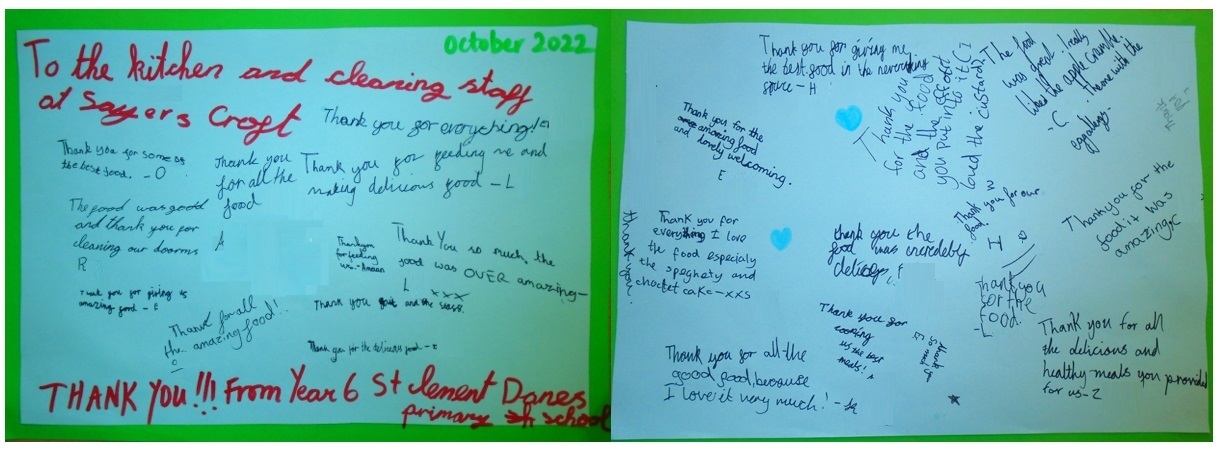 October 2022
To the kitchen and cleaning staff
at Sayers Croft
Thank you for everything!
Thank you for some of
the best food. - O
Thank you
for all the
food
A
Thank you for feeding me and
making delicious food - L
The food was good
and thank you for
cleaning our doorms
R
Thankyou
for feeding
us.
Thank You so much, the
food was OVER amazing -
L xxx
Thank you for giving us
amazing food - E
Thank you and the staff.
Thank for all
the amazing food!!
Thank you for the delicious food - I
THANK YOU!!! From Year 6 St Clement Danes
primary school
Thank you for giving me
the best food in the
- H
Thank you
for the food
and the effort
you put into it I
loved the custard!
The food
was great. I really
liked the apple crumble.
The one with the
- C
Thank you for the
amazing food
and lovely welcoming.
E
Thank you for our
food
Thankyou for the
food it was
amazing
Thank you for
everything I love
the food especialy
the speghety and
choclet cake - xxs
thank you the
food was incredebly
Thank you
for the
food.
-L
Thank you for
cooking
us the best
meals!
Thank you for all the
good food, because
I love it very much!
Thank you for all
the delicious and
healthy meals you provided
for us - Z